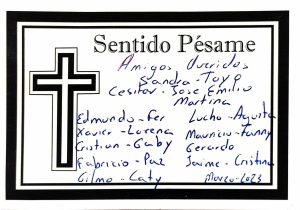 Sentido Pésame
Amigos Queridos
Sandra - Toyo
Cesitar - Jose Emilio
Martina
Edmundo - Fer Lucho - Aguita
Xavier - Lorena Mauricio - Fanny
Cristian - Gaby Gerardo
Fabricio - Paz Jaime - Cristina
Gilmo - Caty Marzo - 2023